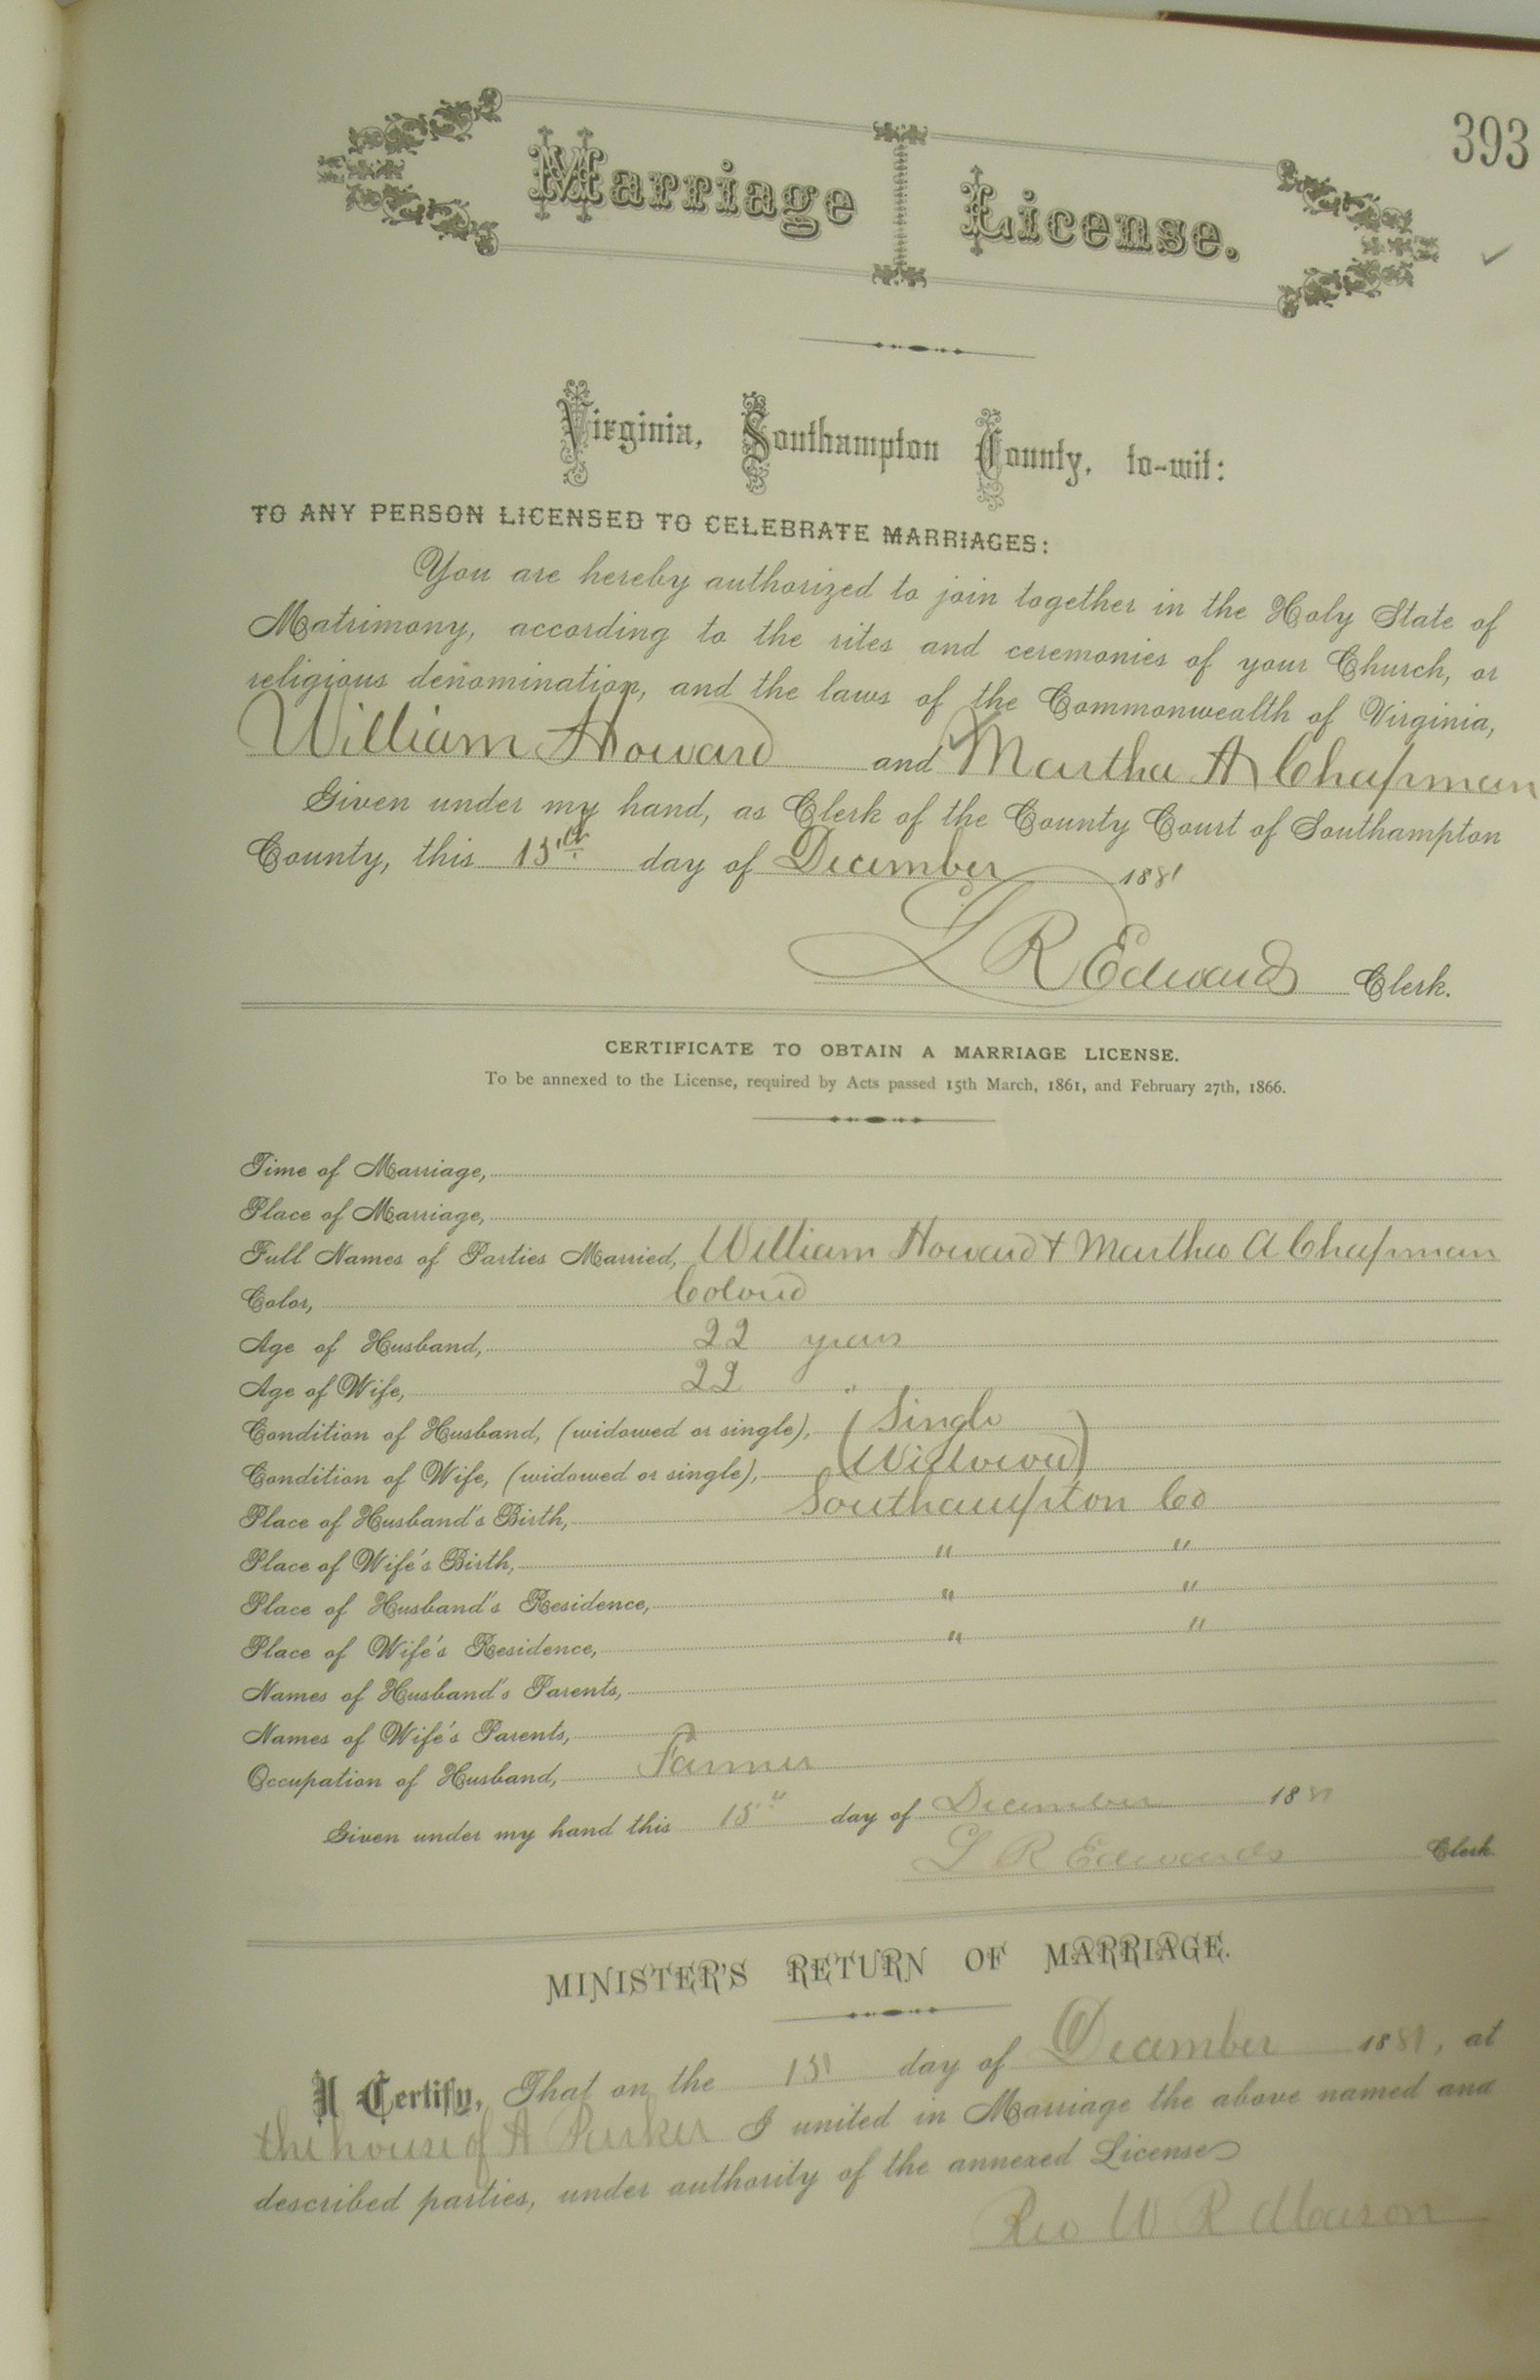 393
Marriage License.
Virginia, Southampton County, to-wit:
TO ANY PERSON LICENSED TO CELEBRATE MARRIAGES:
You are hereby authorized to join together in the Holy State of
Matrimony, according to the rites and ceremonies of your Church, or
religious denomination, and the laws of the Commonwealth of Virginia,
William Howard and Martha A Chapman
Given under my hand, as Clerk of the County Court of Southampton
County, this 15th day of December 1881
L R Edwards Clerk.
CERTIFICATE TO OBTAIN A MARRIAGE LICENSE.
To be annexed to the License, required by Acts passed 15th March, 1861, and February 27th, 1866.
Time of Marriage,
Place of Marriage,
Full Names of Parties Married, William Howard & Martha A Chapman
Color, Colored
Age of Husband, 22 years
Age of Wife, 22 "
Condition of Husband, (widowed or single), (Single
Condition of Wife, (widowed or single), (Widowed)
Place of Husband's Birth, Southampton Co
Place of Wife's Birth, " "
Place of Husband's Residence, " "
Place of Wife's Residence, " "
Names of Husband's Parents,
Names of Wife's Parents,
Occupation of Husband, Farmer
Given under my hand this 15th day of December 1881
L R Edwards Clerk
MINISTER'S RETURN OF MARRIAGE.
I Certify, That on the 15 day of December 1881, at
the house of A Parker I united in Marriage the above named and
described parties, under authority of the annexed License
Rev W R Mason